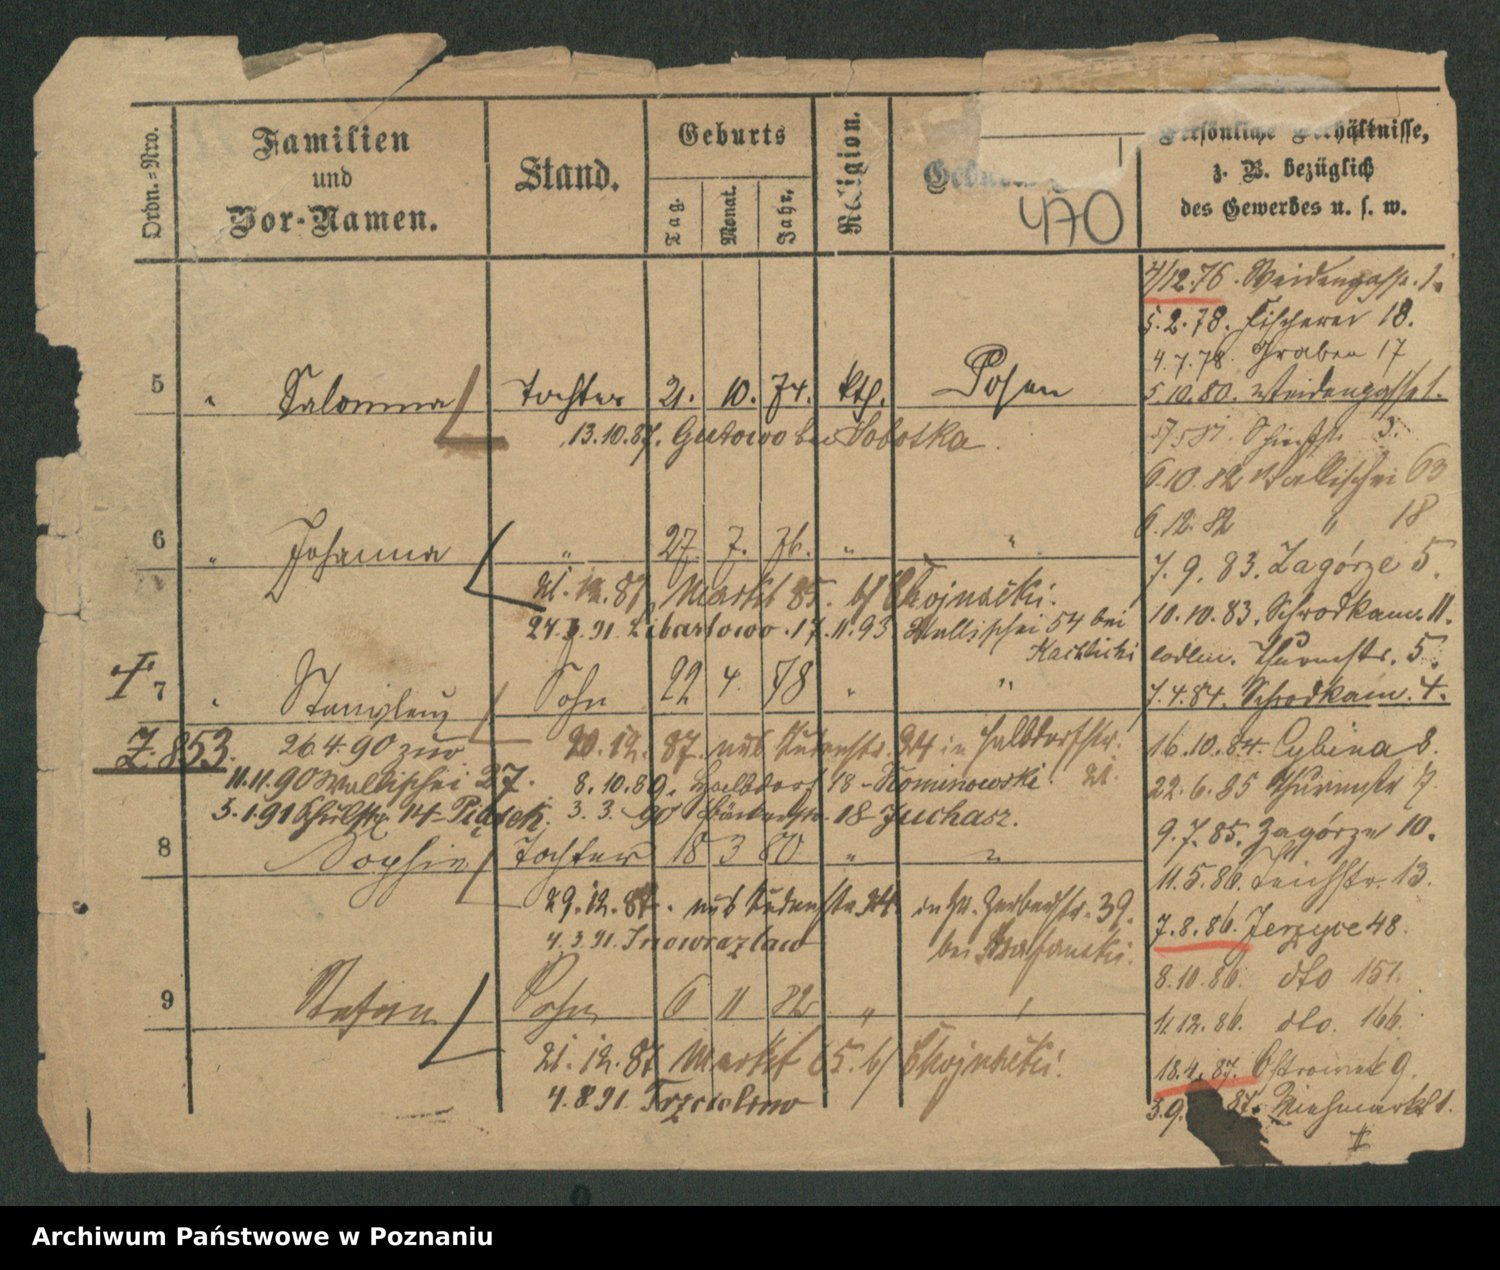 Ordn.-Nro.
Familien
und
Vor-Namen.
Stand.
Geburts
Tag.
Monat.
Jahr.
Religion.
470
Persönliche Verhältnisse,
z. B. bezüglich
des Gewerbes u. s. w.
4/12.76. Weidengasse 1.
5.2.78. Fischerei 18.
4.7.78. Graben 17
5.10.80. Weidengasse 1.
3.
6.10.82 Wallischei 63
6.12.82 " 18
7.9.83. Zagórze 5.
10.10.83. Schrodkam. 11.
eodem. Thurmstr. 5.
7.4.84. Schrodkam. 4.
16.10.84. Cybina 8.
22.6.85 Thurmstr 7.
9.7.85. Zagórze 10.
11.5.86. Teichstr. 13.
7.8.86. Jerzyce 48.
8.10.86. dto 151.
11.12.86. dto. 166.
18.4.87. Ostrowek 9.
3.9. 87. Viehmarkt 1.
5 " Salomea Tochter 21. 10. 74. kth. Posen
13.10.87. Gutowo bei Sobotka.
6 " Johanna " 27. 7. 76. " "
21.12.87. Markt 85. b/ Chojnacki.
24. 91 Libartowo. 17.11.93 Wallischei 54 bei
Kachlicki
7 " Stanislaus Sohn 22 4. 78 " "
Z. 853. 26.4.90 zur
20.12.87. 24 in Halbdorfstr.
11.11.90 Wallischei 27. 8.10.89. Halbdorf 18 - Kominowski.
5.1.91 Schulstr 14 - Piątek. 3.3.90 18 Juchasz.
8 Sophie Tochter 18 3 80 " "
29.12.87. 24. in Gr. Gerberstr. 39.
4.3.91. Inowrazlaw bei
9 Stefan Sohn 6 11 82 " "
21.12.87 Markt 65. b/ Chojnacki.
4.8.91. Trzcielino
Archiwum Państwowe w Poznaniu